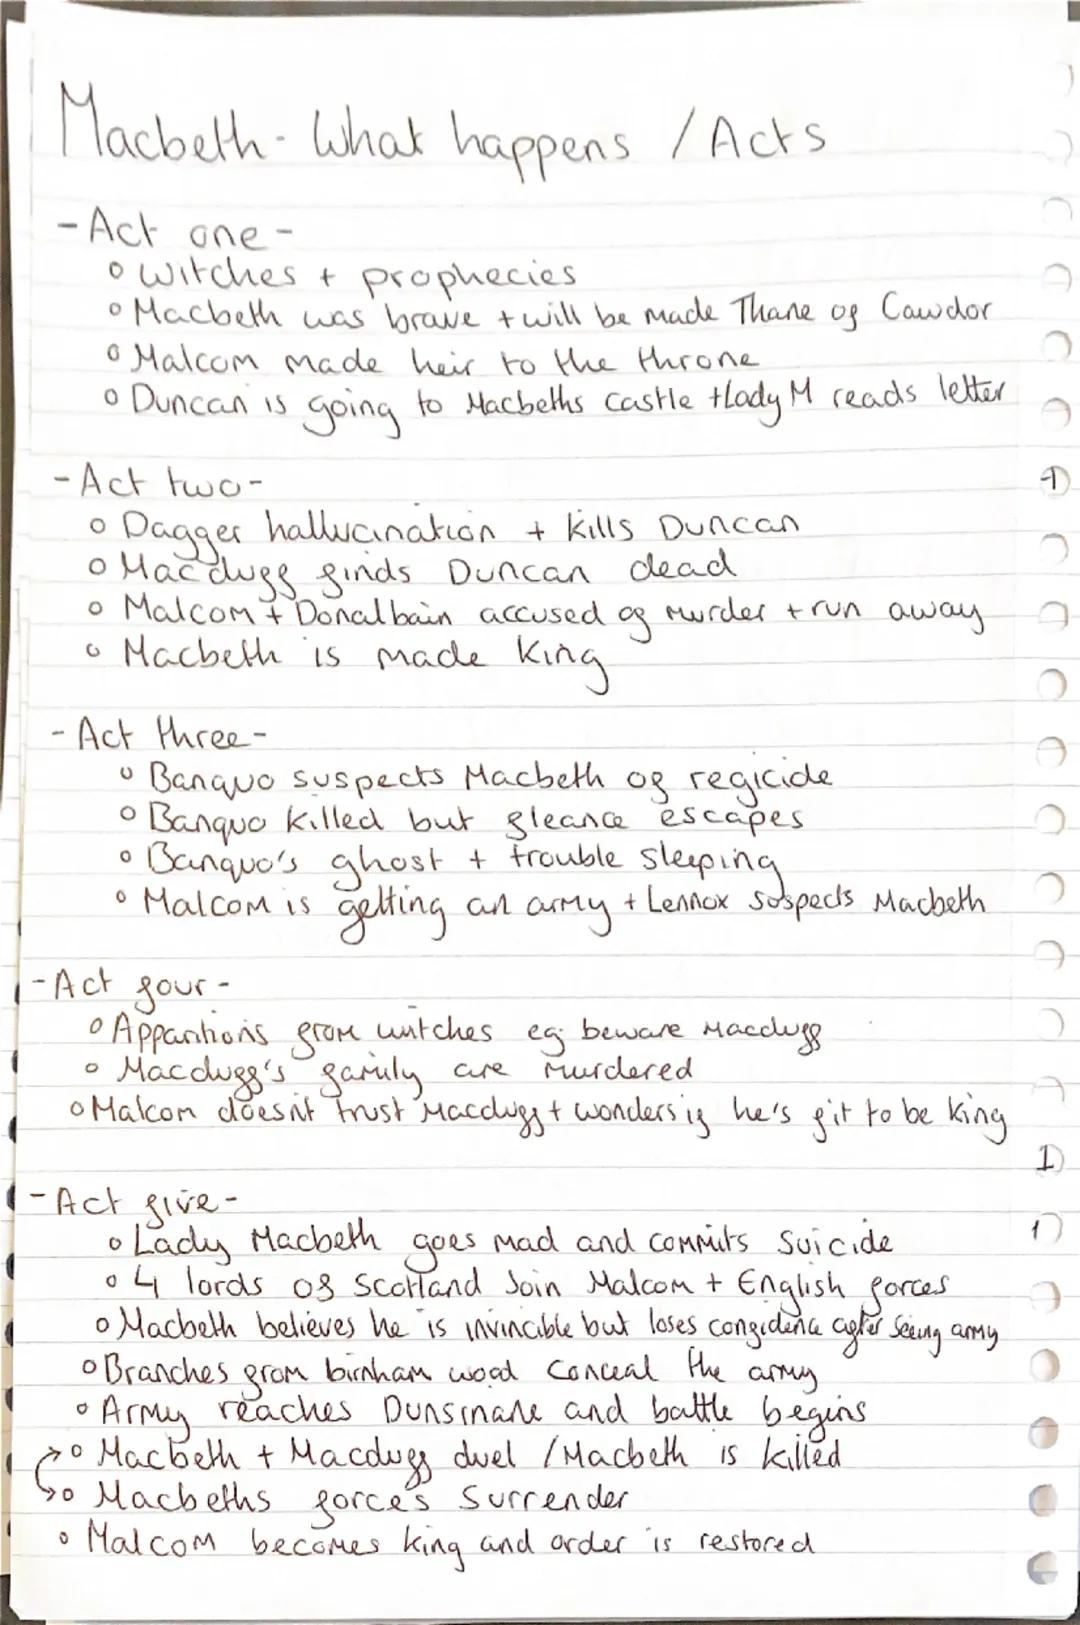 Macbeth - What happens / Acts
- Act one -
o Witches + prophecies
o Macbeth was brave + will be made Thane of Cawdor
o Malcom made heir to the throne
o Duncan is going to Macbeths castle + Lady M reads letter
- Act two -
o Dagger hallucination + kills Duncan
o Macduff finds Duncan dead
o Malcom + Donalbain accused of murder + run away
o Macbeth is made King
- Act three -
o Banquo suspects Macbeth of regicide
o Banquo killed but fleance escapes
o Banquo's ghost + trouble sleeping
o Malcom is getting an army + Lennox suspects Macbeth
- Act four -
o Apparitions from witches eg: beware Macduff
o Macduff's family are murdered
o Malcom doesn't trust Macduff + wonders if he's fit to be king
- Act five -
o Lady Macbeth goes mad and commits suicide
o 4 lords of Scotland join Malcom + English forces
o Macbeth believes he is invincible but loses confidence after seeing army
o Branches from birnham wood conceal the army
o Army reaches Dunsinane and battle begins
o Macbeth + Macduff duel / Macbeth is killed
o Macbeths force's surrender
o Malcom becomes king and order is restored